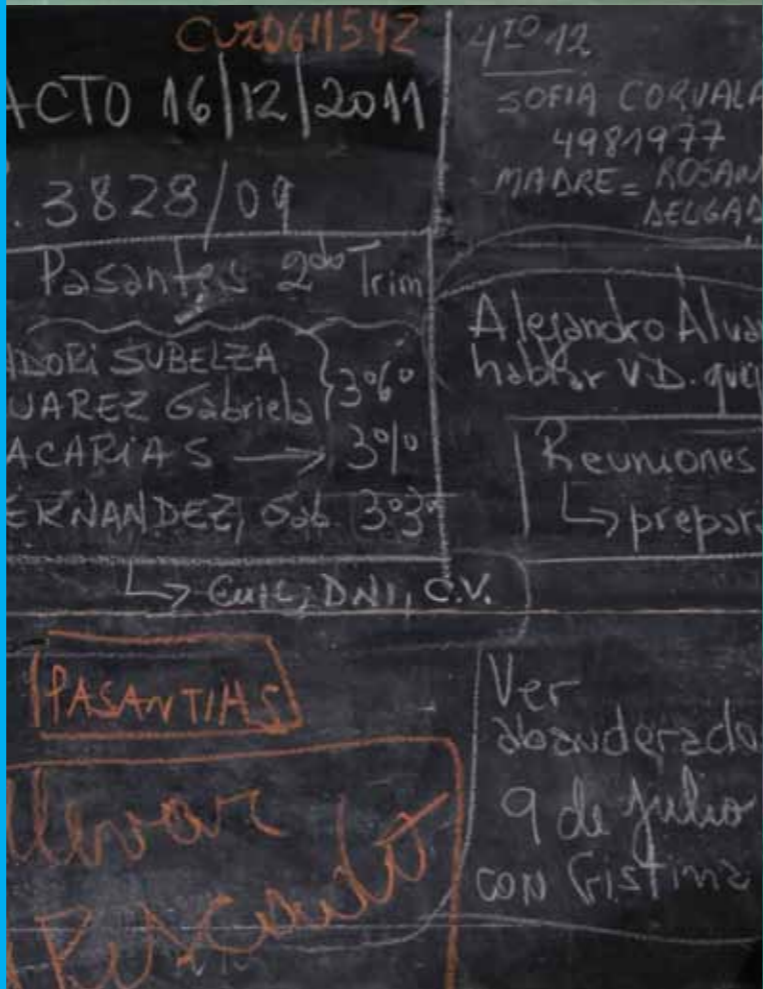 CUZ0611542
ACTO 16/12/2011
. 3828/09
Pasantes 2do Trim
ADORI SUBELZA
UAREZ Gabriela } 3º6º
ACARIAS → 3º1º
ERNANDEZ, Gab. 3º3º
↳ CUIL, DNI, C.V.
PASANTIAS
llevar
4TO 12
SOFIA CORVALA
4981977
MADRE = ROSAN
DELGAD
Alejandro Alva
hablar V.D. que
Reuniones
↳ prepar
Ver
abanderado
9 de Julio
CON Cristina